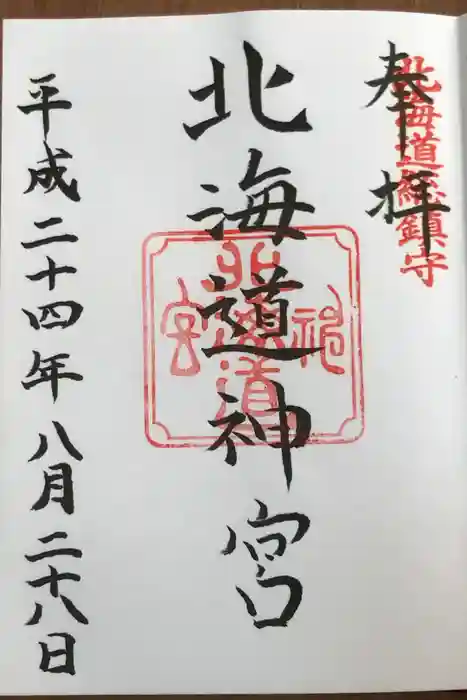 奉拝
北海道総鎮守
北海道神宮
北海道神宮
平成二十四年八月二十八日